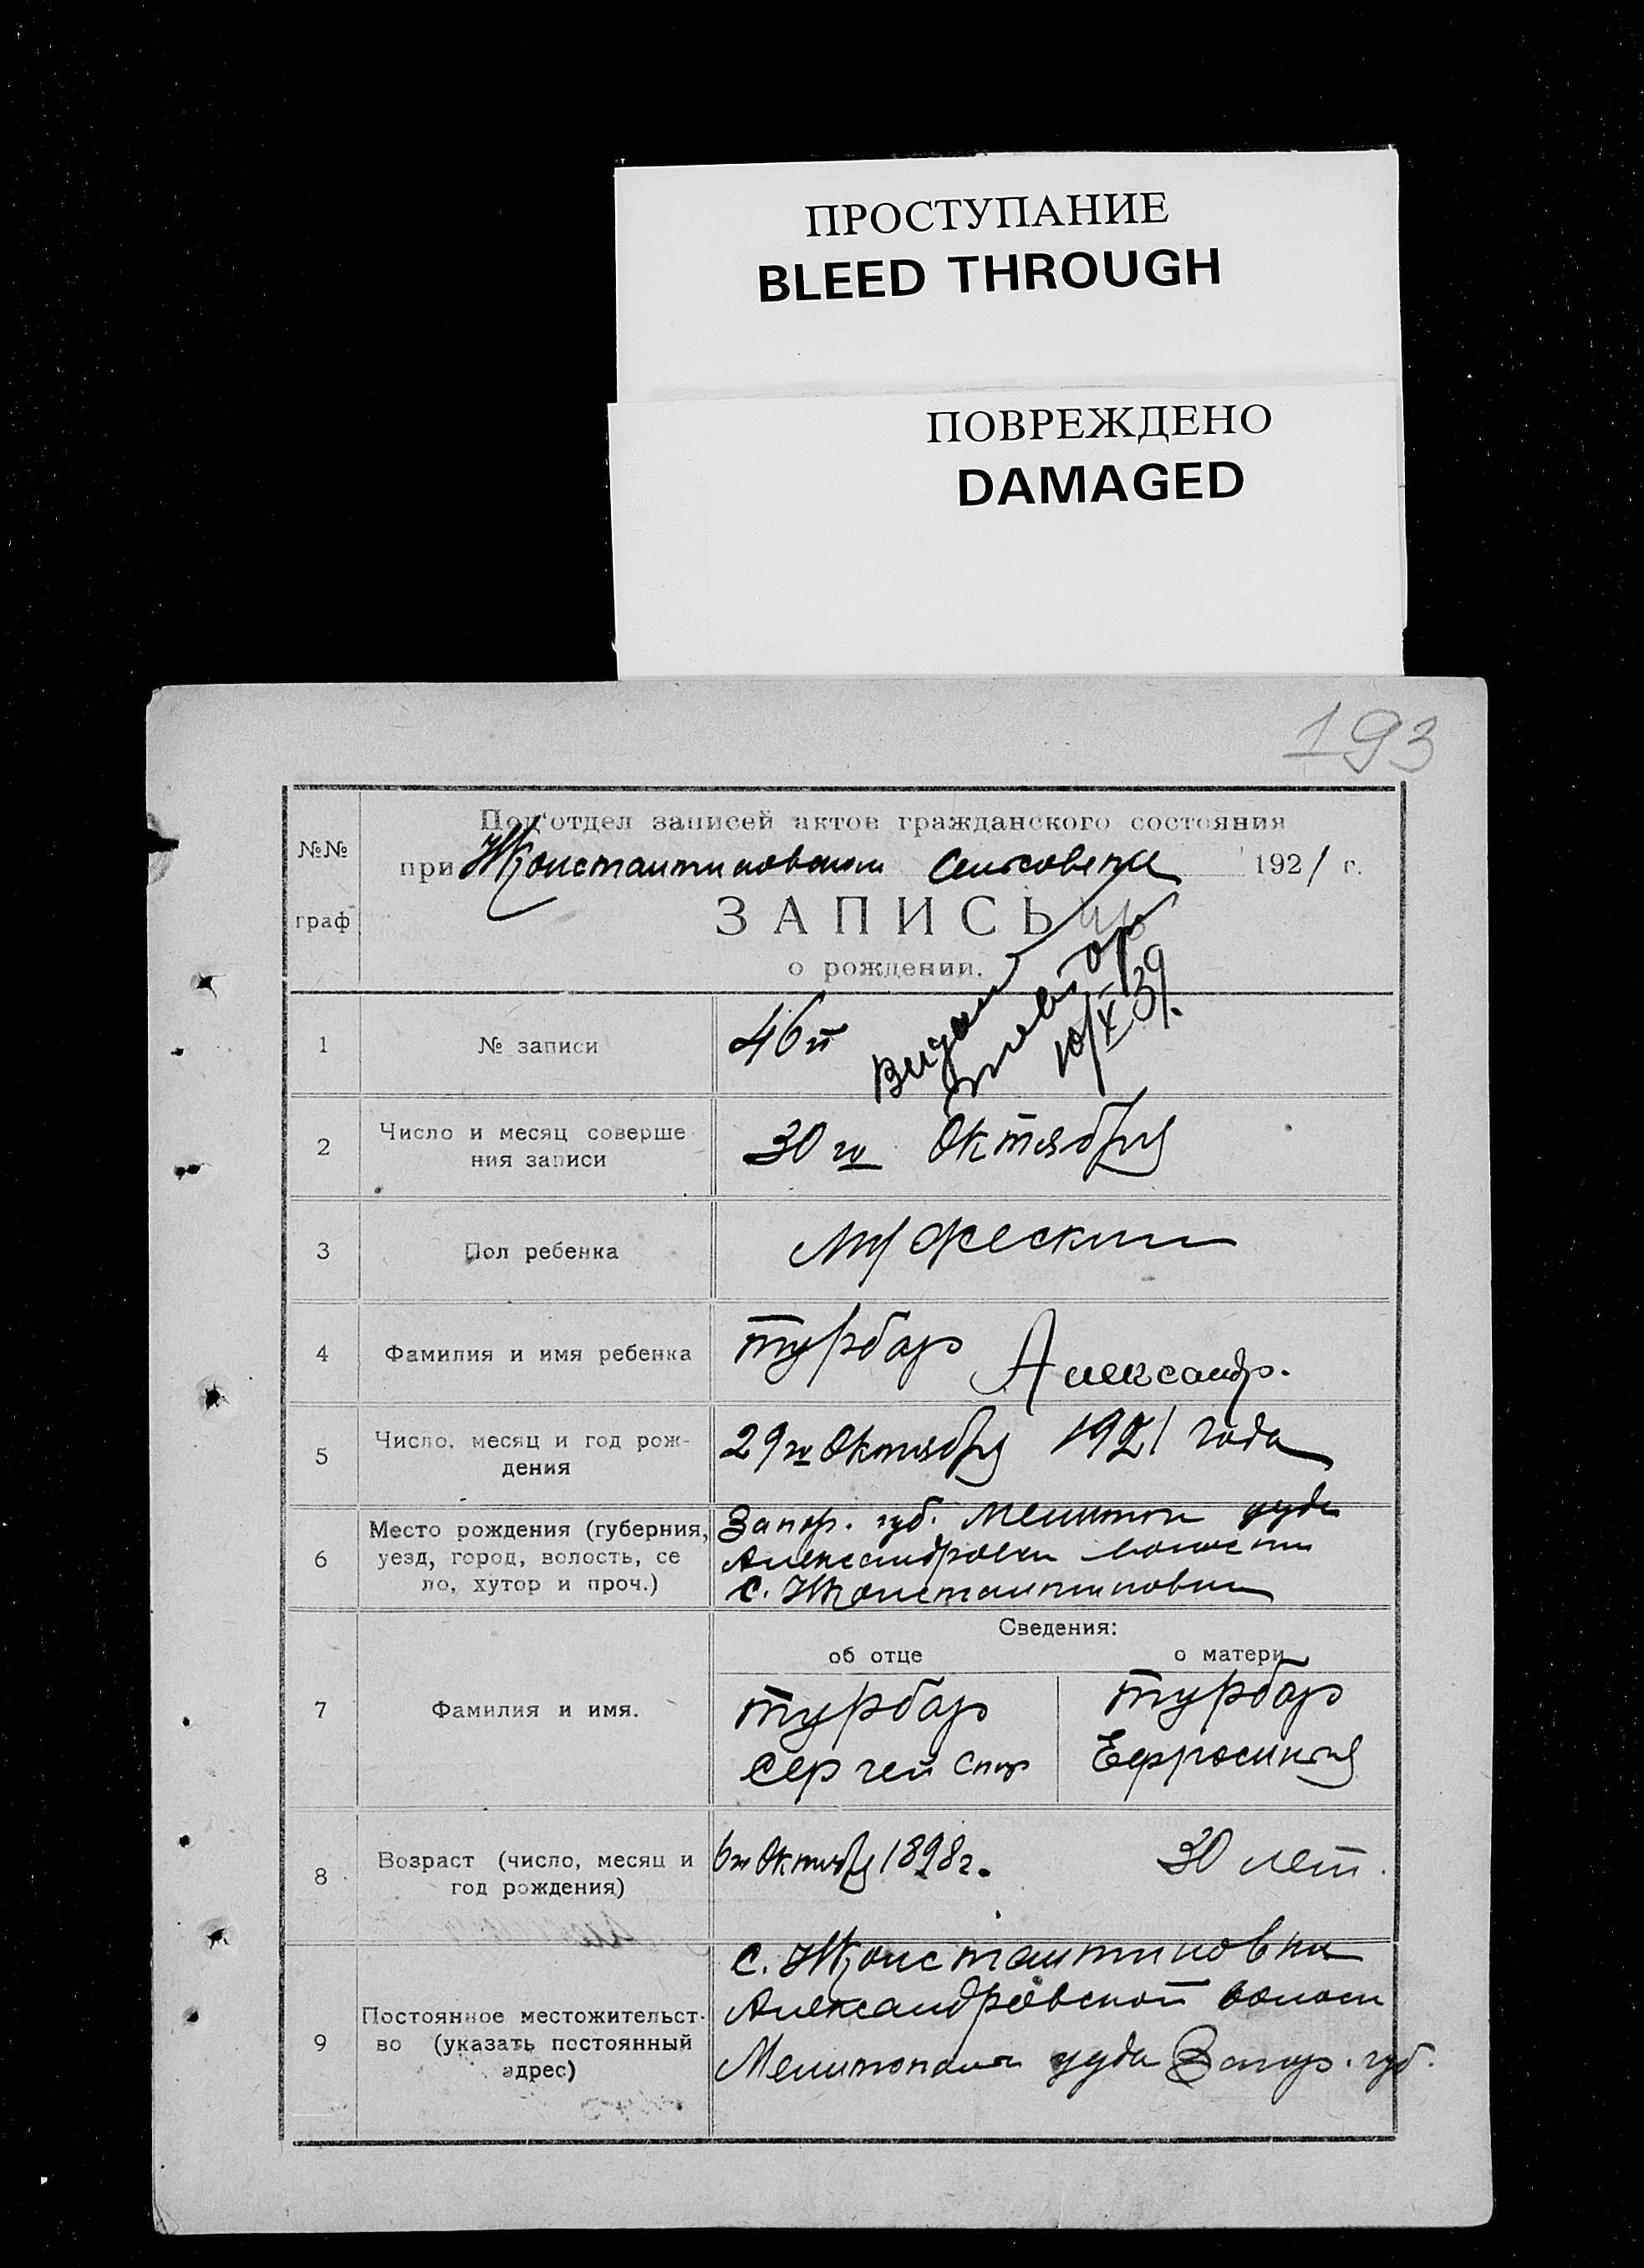 ПРОСТУПАНИЕ
BLEED THROUGH
ПОВРЕЖДЕНО
DAMAGED
193
№№
граф
Под'отдел записей актов гражданского состояния
при Константиновском Сельсовете 1921 г.
ЗАПИСЬ
о рождении.
Выдан
10/X-39.
1 № записи 46й
2 Число и месяц соверше
ния записи
30го Октября
3 Пол ребенка
4 Фамилия и имя ребенка Турбар Александр.
5 Число, месяц и год рож-
дения
29го Октября 1921 года
6 Место рождения (губерния,
уезд, город, волость, се
ло, хутор и проч.)
Запор. губ. Мелитоп уезда
Александровск волости
с. Константиновки
Сведения:
об отце о матери
7 Фамилия и имя.
Турбар Турбар
Сергей Ефросиния
8 Возраст (число, месяц и
год рождения)
6го Октября 1898 г. 30 лет.
9 Постоянное местожительст-
во (указать постоянный
адрес)
с. Константиновки
Александровской волости
уезда Запор. губ.